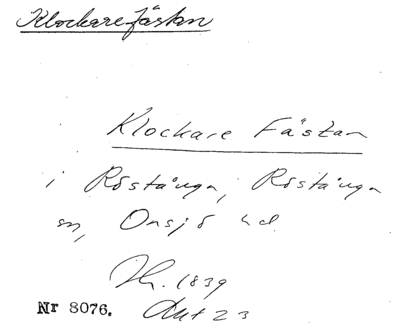 Klockarefästan
Klockare Fästan
i Röstånga, Röstånga
sn, Onsjö hd.
Jk. 1839
Nr 8076. Akt 23